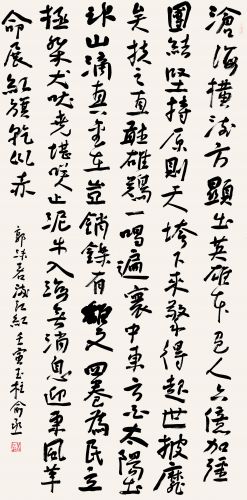 滄海橫流方顯出英雄本色人六億加強
團結堅持原則天垮下來擎得起世披靡
矣扶之直聽雄鷄一唱遍寰中東方白太陽出
冰山滴真金在豈銷鑠有雄文四卷為民立
極桀犬吠堯堪笑止泥牛入海無消息迎東風革
命展紅旗乾坤赤
郭沫若滿江紅壬寅玉柱俞